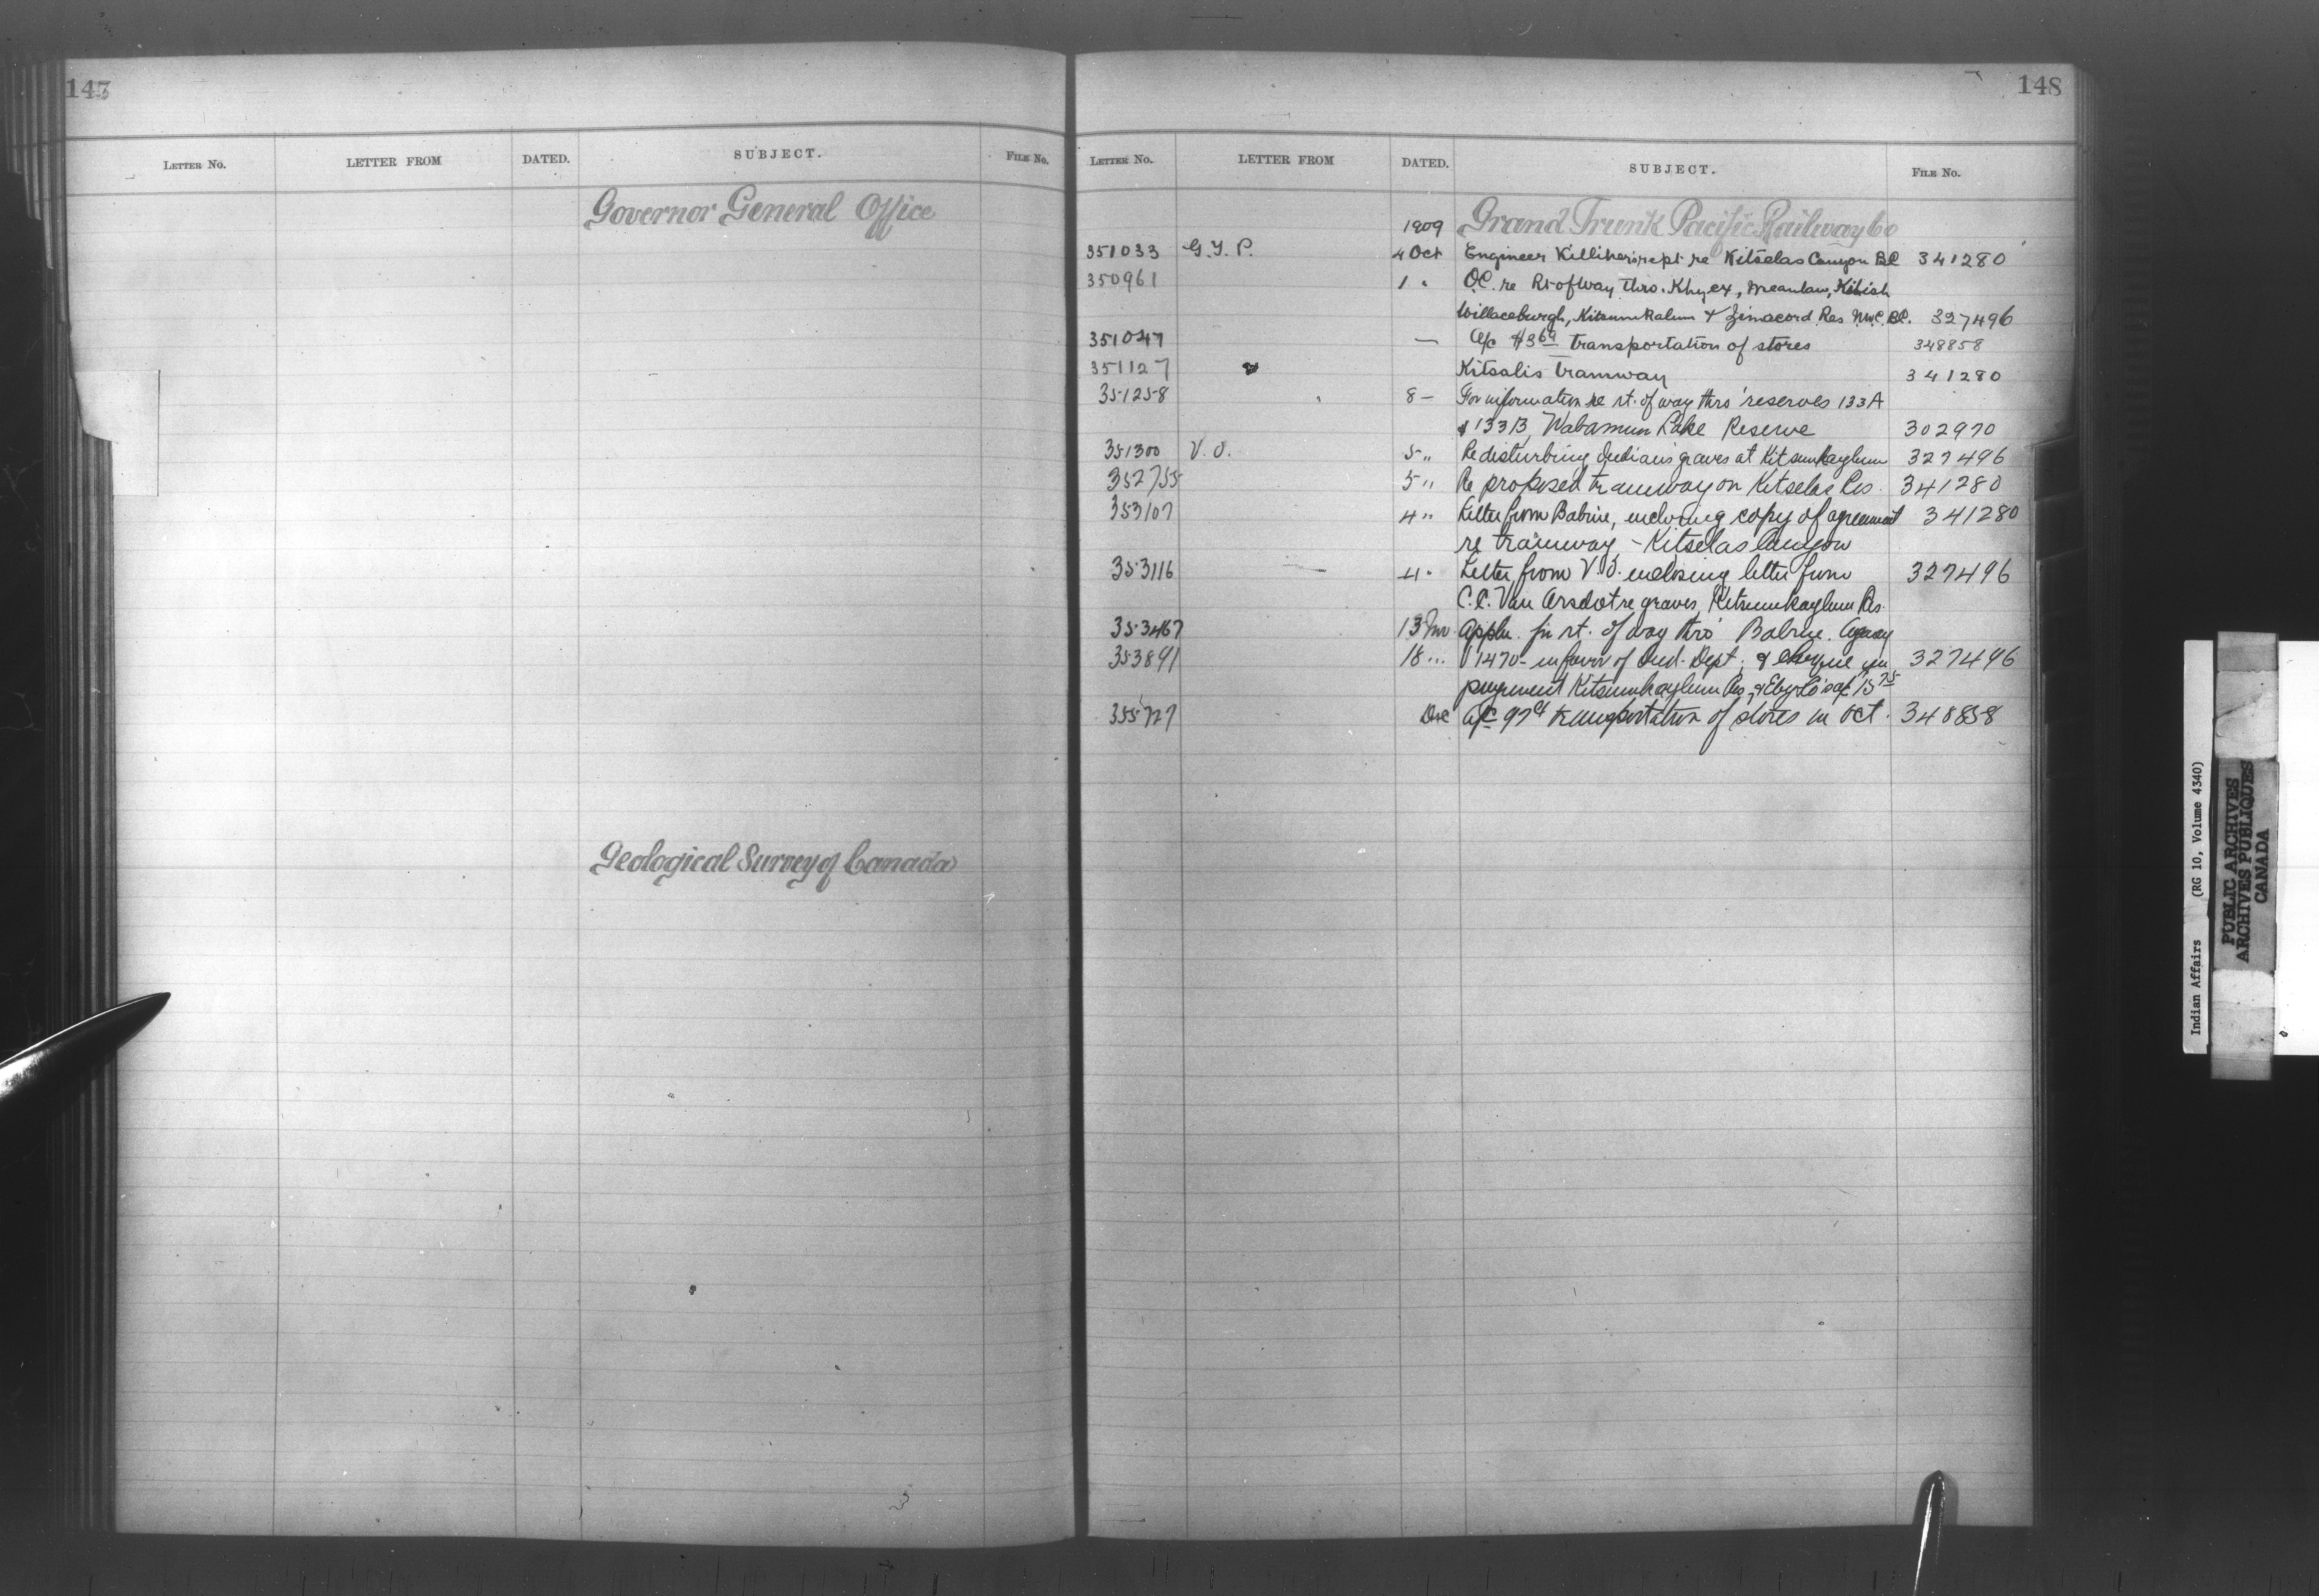 147
LETTER NO. LETTER FROM DATED. SUBJECT. FILE NO.
Governor General Office
Geological Survey of Canada
148
LETTER NO. LETTER FROM DATED. SUBJECT. FILE NO.
1909 Grand Trunk Pacific Railway Co
351033 G.T.P. 4 Oct Engineer Killiher's rept re Kitselas Canyon BC 341280
350961 1 " O.C. re Rt of Way thro. Khyex, Meanlaw,
Willaceburgh, Kitsumkalum & Zimacord Res N.W.C. BC. 327496
351047 — A/c $3 69 transportation of stores 348858
351127 " Kitsalis tramway 341280
351258 " 8 — For information re rt. of way thro' reserves 133A
& 133B, Wabamun Lake Reserve 302970
351300 V. O. 5 " Re disturbing Indians graves at Kitsumkaylum 327496
352755 5 " Re proposed tramway on Kitselas Res. 341280
353107 4 " Letter from Babine, enclosing copy of agreement 341280
re tramway - Kitselas Canyon
353116 — 4 " Letter from V.O. enclosing letter from 327496
C.C. Van Arsdol re graves, Kitsumkaylum Res.
353467 13 Nov Appln. for rt. of way thro' Babine Agency
353891 18 " 1470- in favor of Ind. Dept. & cheque in 327496
payment Kitsumkaylum Res, & Eby Co's a/c 15 75
355727 Dec A/c 97 cts transportation of stores in Oct. 348858
Indian Affairs (RG 10, Volume 4340)
PUBLIC ARCHIVES
ARCHIVES PUBLIQUES
CANADA